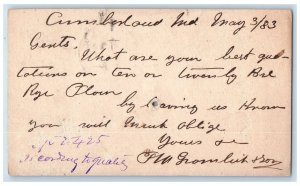 Cumberland Md May 3/83
Gents.
What are your best quo-
tations on ten or twenty Bbl
Rye Flour
by leaving us Know
you will much Oblige
Yours &c
& Son
2 425
according to quality